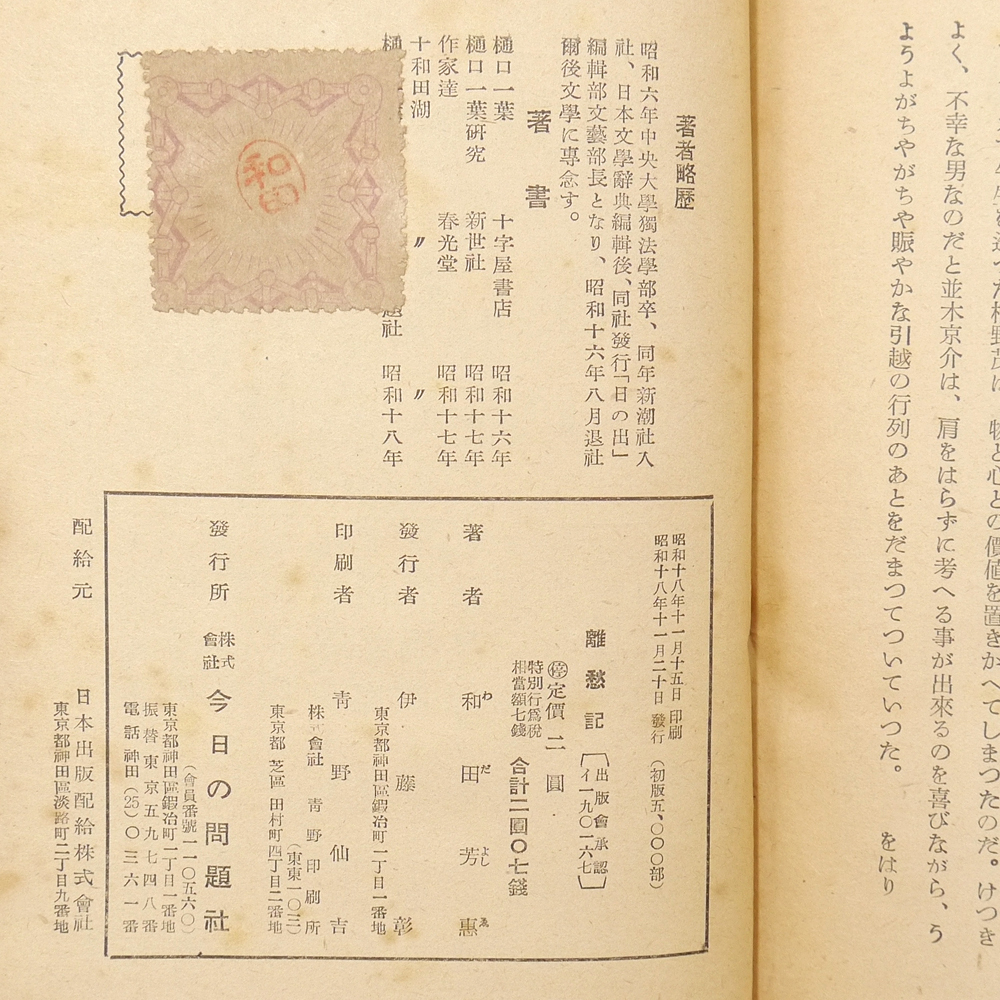 よく、不幸な男なのだと並木京介は、肩をはらずに考へる事が出來るのを喜びながら、う
ようよがちやがちや賑やかな引越の行列のあとをだまつてついていつた。　をはり
著者略歷
昭和六年中央大學獨法學部卒、同年新潮社入
社、日本文學辭典編輯後、同社發行「日の出」
編輯部文藝部長となり、昭和十六年八月退社
爾後文學に專念す。
著書
樋口一葉　十字屋書店　昭和十六年
樋口一葉硏究　新世社　昭和十七年
作家達　春光堂　昭和十七年
十和田湖　〃　〃
社　昭和十八年
和田
昭和十八年十一月十五日 印刷
昭和十八年十一月二十日 發行
（初版五、〇〇〇部）
離愁記
〔出版會承認
イ一九〇一六七〕
㊡定價二圓
特別行爲稅
相當額七錢
合計二圓〇七錢
著者　和田芳惠
わだよしゑ
發行者　伊藤彰
東京都神田區鍛冶町二丁目一番地
印刷者　靑野仙吉
株式會社　靑野印刷所
（東東一〇三）
東京都芝區田村町四丁目二番地
發行所　株式會社　今日の問題社
（會員番號一一〇五六〇）
東京都神田區鍛冶町二丁目一番地
振替東京五九七四八番
電話神田(25)〇三六一番
配給元　日本出版配給株式會社
東京都神田區淡路町二丁目九番地